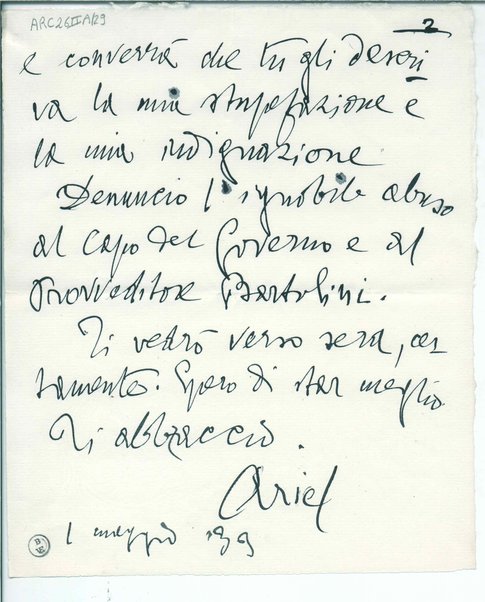 ARC26IIA/29
2
e converrà che tu gli descri
va la mia stupefazione e
la mia indignazione
Denuncio l'ignobile abuso
al Capo del Governo e al
Provveditore Bartolini.
Ti vedrò verso sera, cer
tamente. Spero di star meglio
Ti abbraccio.
Ariel
1 maggio '39